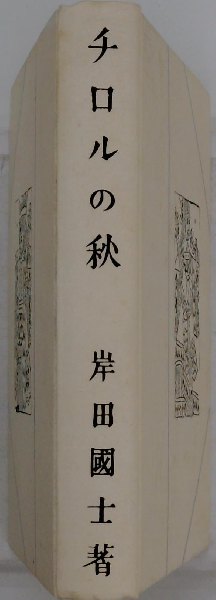 チロルの秋 岸田國士著